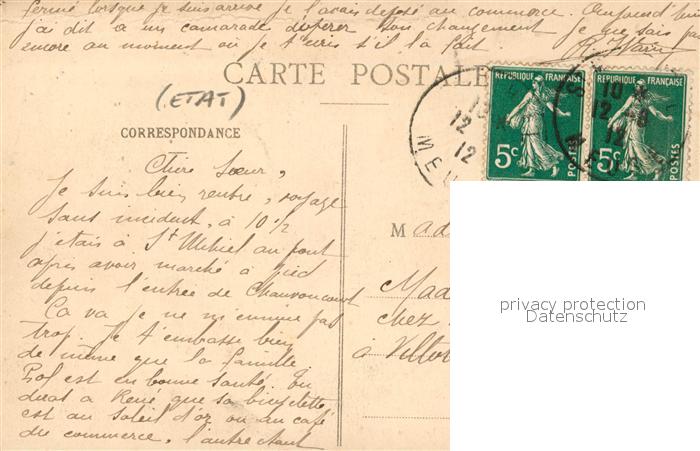 fermé lorsque je suis arrivé je l'avais déposé au commerce. Aujourd'hui
j'ai dit a un camarade d'opérer son changement je ne sais pas
encore au moment ou je t'écris s'il l'a fait.
CARTE POSTALE
(ETAT)
CORRESPONDANCE
Chère Sœur,
Je suis bien rentré, voyage
sans incident, à 10 1/2
j'étais à St Mihiel au pont
après avoir marché à pied
depuis l'entrée de Chauvoncourt
Ça va je ne m'ennuie pas
trop. Je t'embrasse bien
de même que la famille
Pol est en bonne santé. Tu
diras à René que sa bicyclette
est au Soleil d'or ou au café
du commerce, l'autre étant
REPUBLIQUE FRANÇAISE
5c
POSTES
REPUBLIQUE FRANÇAISE
5c
POSTES
12
12
MEU
10
12
12
M ad
Mad
chez
à Villo
privacy protection
Datenschutz